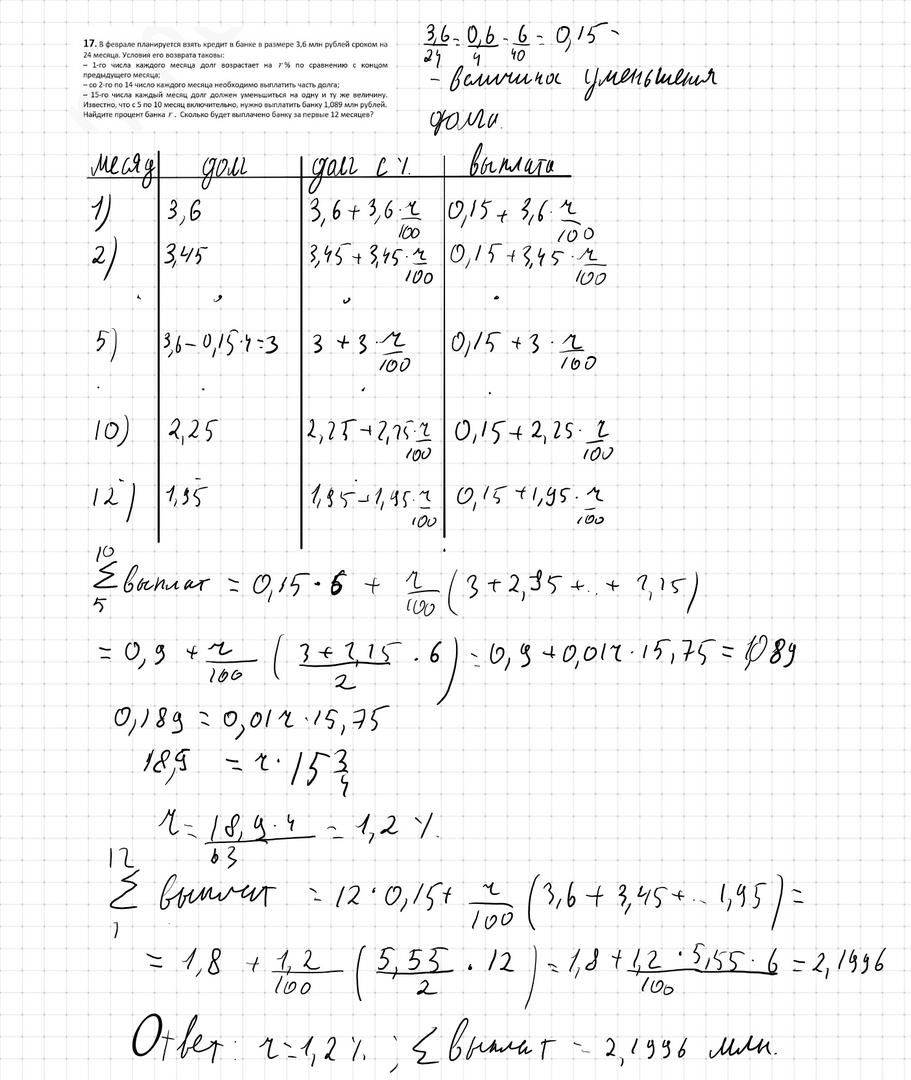 17. В феврале планируется взять кредит в банке в размере 3,6 млн рублей сроком на
24 месяца. Условия его возврата таковы:
– 1-го числа каждого месяца долг возрастает на r % по сравнению с концом
предыдущего месяца;
– со 2-го по 14 число каждого месяца необходимо выплатить часть долга;
– 15-го числа каждый месяц долг должен уменьшиться на одну и ту же величину.
Известно, что с 5 по 10 месяц включительно, нужно выплатить банку 1,089 млн рублей.
Найдите процент банка r . Сколько будет выплачено банку за первые 12 месяцев?
3,6/24 = 0,6/4 = 6/40 = 0,15 -
- величина уменьшения
долга.
месяц долг долг с % выплата
1) 3,6 3,6 + 3,6 · r/100 0,15 + 3,6 · r/100
2) 3,45 3,45 + 3,45 · r/100 0,15 + 3,45 · r/100
5) 3,6 - 0,15·4 = 3 3 + 3 · r/100 0,15 + 3 · r/100
10) 2,25 2,25 + 2,25 · r/100 0,15 + 2,25 · r/100
12) 1,95 1,95 + 1,95 · r/100 0,15 + 1,95 · r/100
10 Σ 5 выплат = 0,15 · 6 + r/100 (3 + 2,85 + .. + 2,25)
= 0,9 + r/100 ( (3 + 2,25)/2 · 6 ) = 0,9 + 0,01r · 15,75 = 1,089
0,189 = 0,01r · 15,75
18,9 = r · 15 3/4
r = 18,9 · 4/63 = 1,2 %.
12 Σ 1 выплат = 12 · 0,15 + r/100 (3,6 + 3,45 + .. 1,95) =
= 1,8 + 1,2/100 ( 5,55/2 · 12 ) = 1,8 + 1,2 · 5,55 · 6/100 = 2,1996
Ответ: r = 1,2 %; Σ выплат = 2,1996 млн.